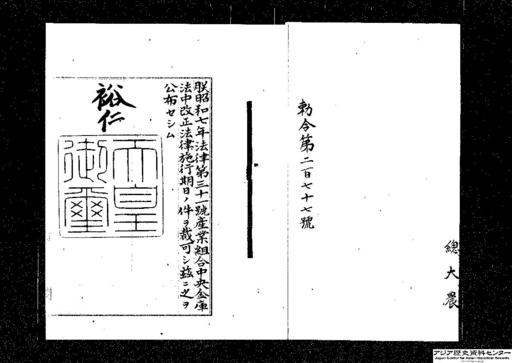 勅令第二百七十七號
總
大
農
朕昭和七年法律第三十一號産業組合中央金庫
法中改正法律施行期日ノ件ヲ裁可シ茲ニ之ヲ
公布セシム
裕仁
天皇
御璽
アジア歴史資料センター
Japan Center for Asian Historical Records